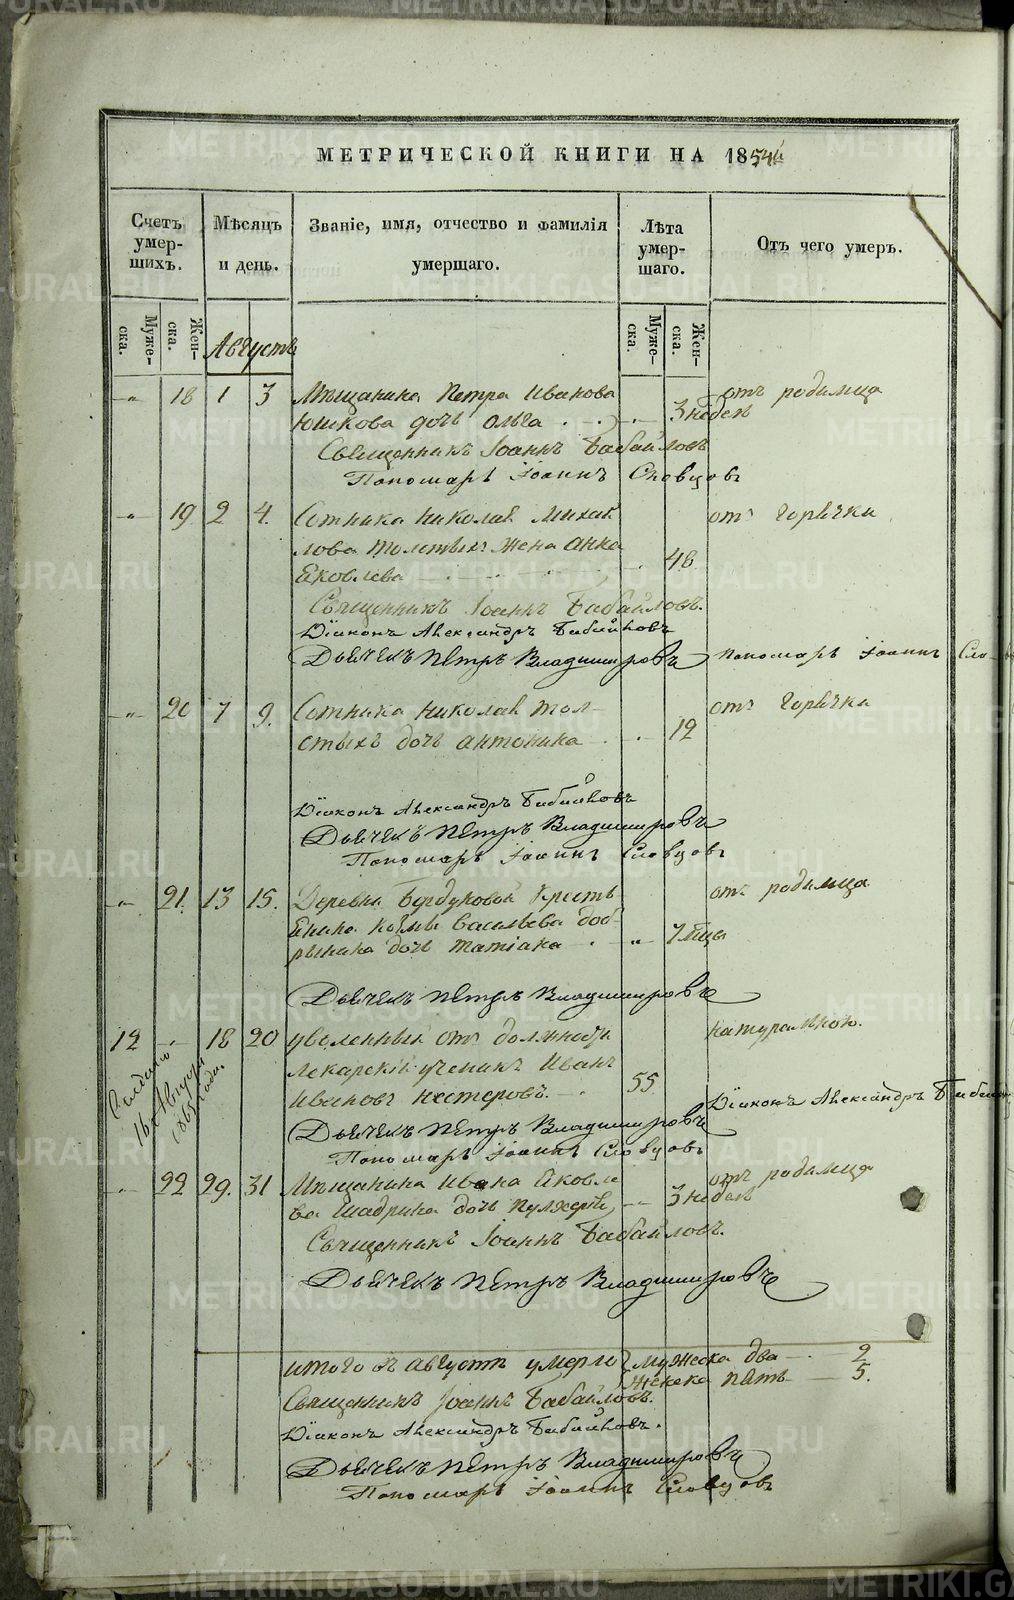 МЕТРИЧЕСКОЙ КНИГИ НА 1854й
Счетъ умер-шихъ.
Мѣсяцъ и день.
Званіе, имя, отчество и фамилія умершаго.
Лѣта умер-шаго.
Отъ чего умеръ.
Муже-ска.
Жен-ска.
Августъ
Муже-ска.
Жен-ска.
-"- 18 1 3 Мѣщанина Петра Иванова отъ родимца
Юшкова дочь Ольга . . - 3 недѣль
Священникъ Іоаннъ Бабайловъ
Пономарь Іоаннъ Словцовъ
-"- 19 2 4. Сотника Николая Михай отъ горячки
лова Толстыхъ жена Анна 48
Яковлева
Священникъ Іоаннъ Бабайловъ.
Діаконъ Александръ Бабайловъ
Дьячекъ Петръ Владимировъ Пономарь Іоаннъ Сло-
-"- 20 7 9. Сотника Николая Тол- отъ горячки
стыхъ дочь Антонина . . 12
Діаконъ Александръ Бабайловъ
Дьячекъ Петръ Владимировъ
Пономарь Іоаннъ Словцовъ
-"- 21. 13 15. Деревни Бердюковой кресть отъ родимца
янина Козмы Васильева Доб-
рынина дочь Татіана . " 7 мцы
Дьячекъ Петръ Владимировъ
12 -"- 18 20 уволенный отъ должности натуральною.
лекарскій ученикъ Иванъ
Ивановъ Нестеровъ. 55
Діаконъ Александръ
Дьячекъ Петръ Владимировъ
Пономарь Іоаннъ Словцовъ
-"- 22 29. 31 Мѣщанина Ивана Яковле отъ родимца
ва Шадрина дочь Пулхерія, -"- 3 недѣль
Священникъ Іоаннъ Бабайловъ.
Дьячекъ Петръ Владимировъ
итого въ августѣ умерло мужеска два 2
женска пять 5.
Священникъ Іоаннъ Бабайловъ.
Діаконъ Александръ Бабайловъ.
Дьячекъ Петръ Владимировъ
Пономарь Іоаннъ Словцовъ
METRIKI.GASO-URAL.RU